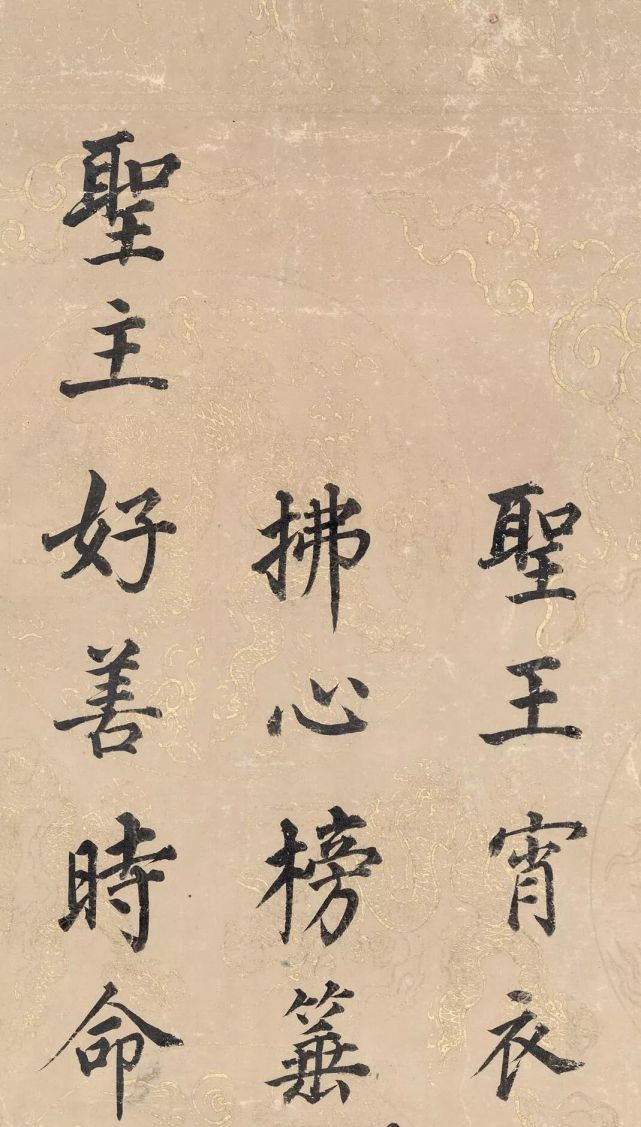 聖王宵衣
拂心榜箠
聖主好善時命